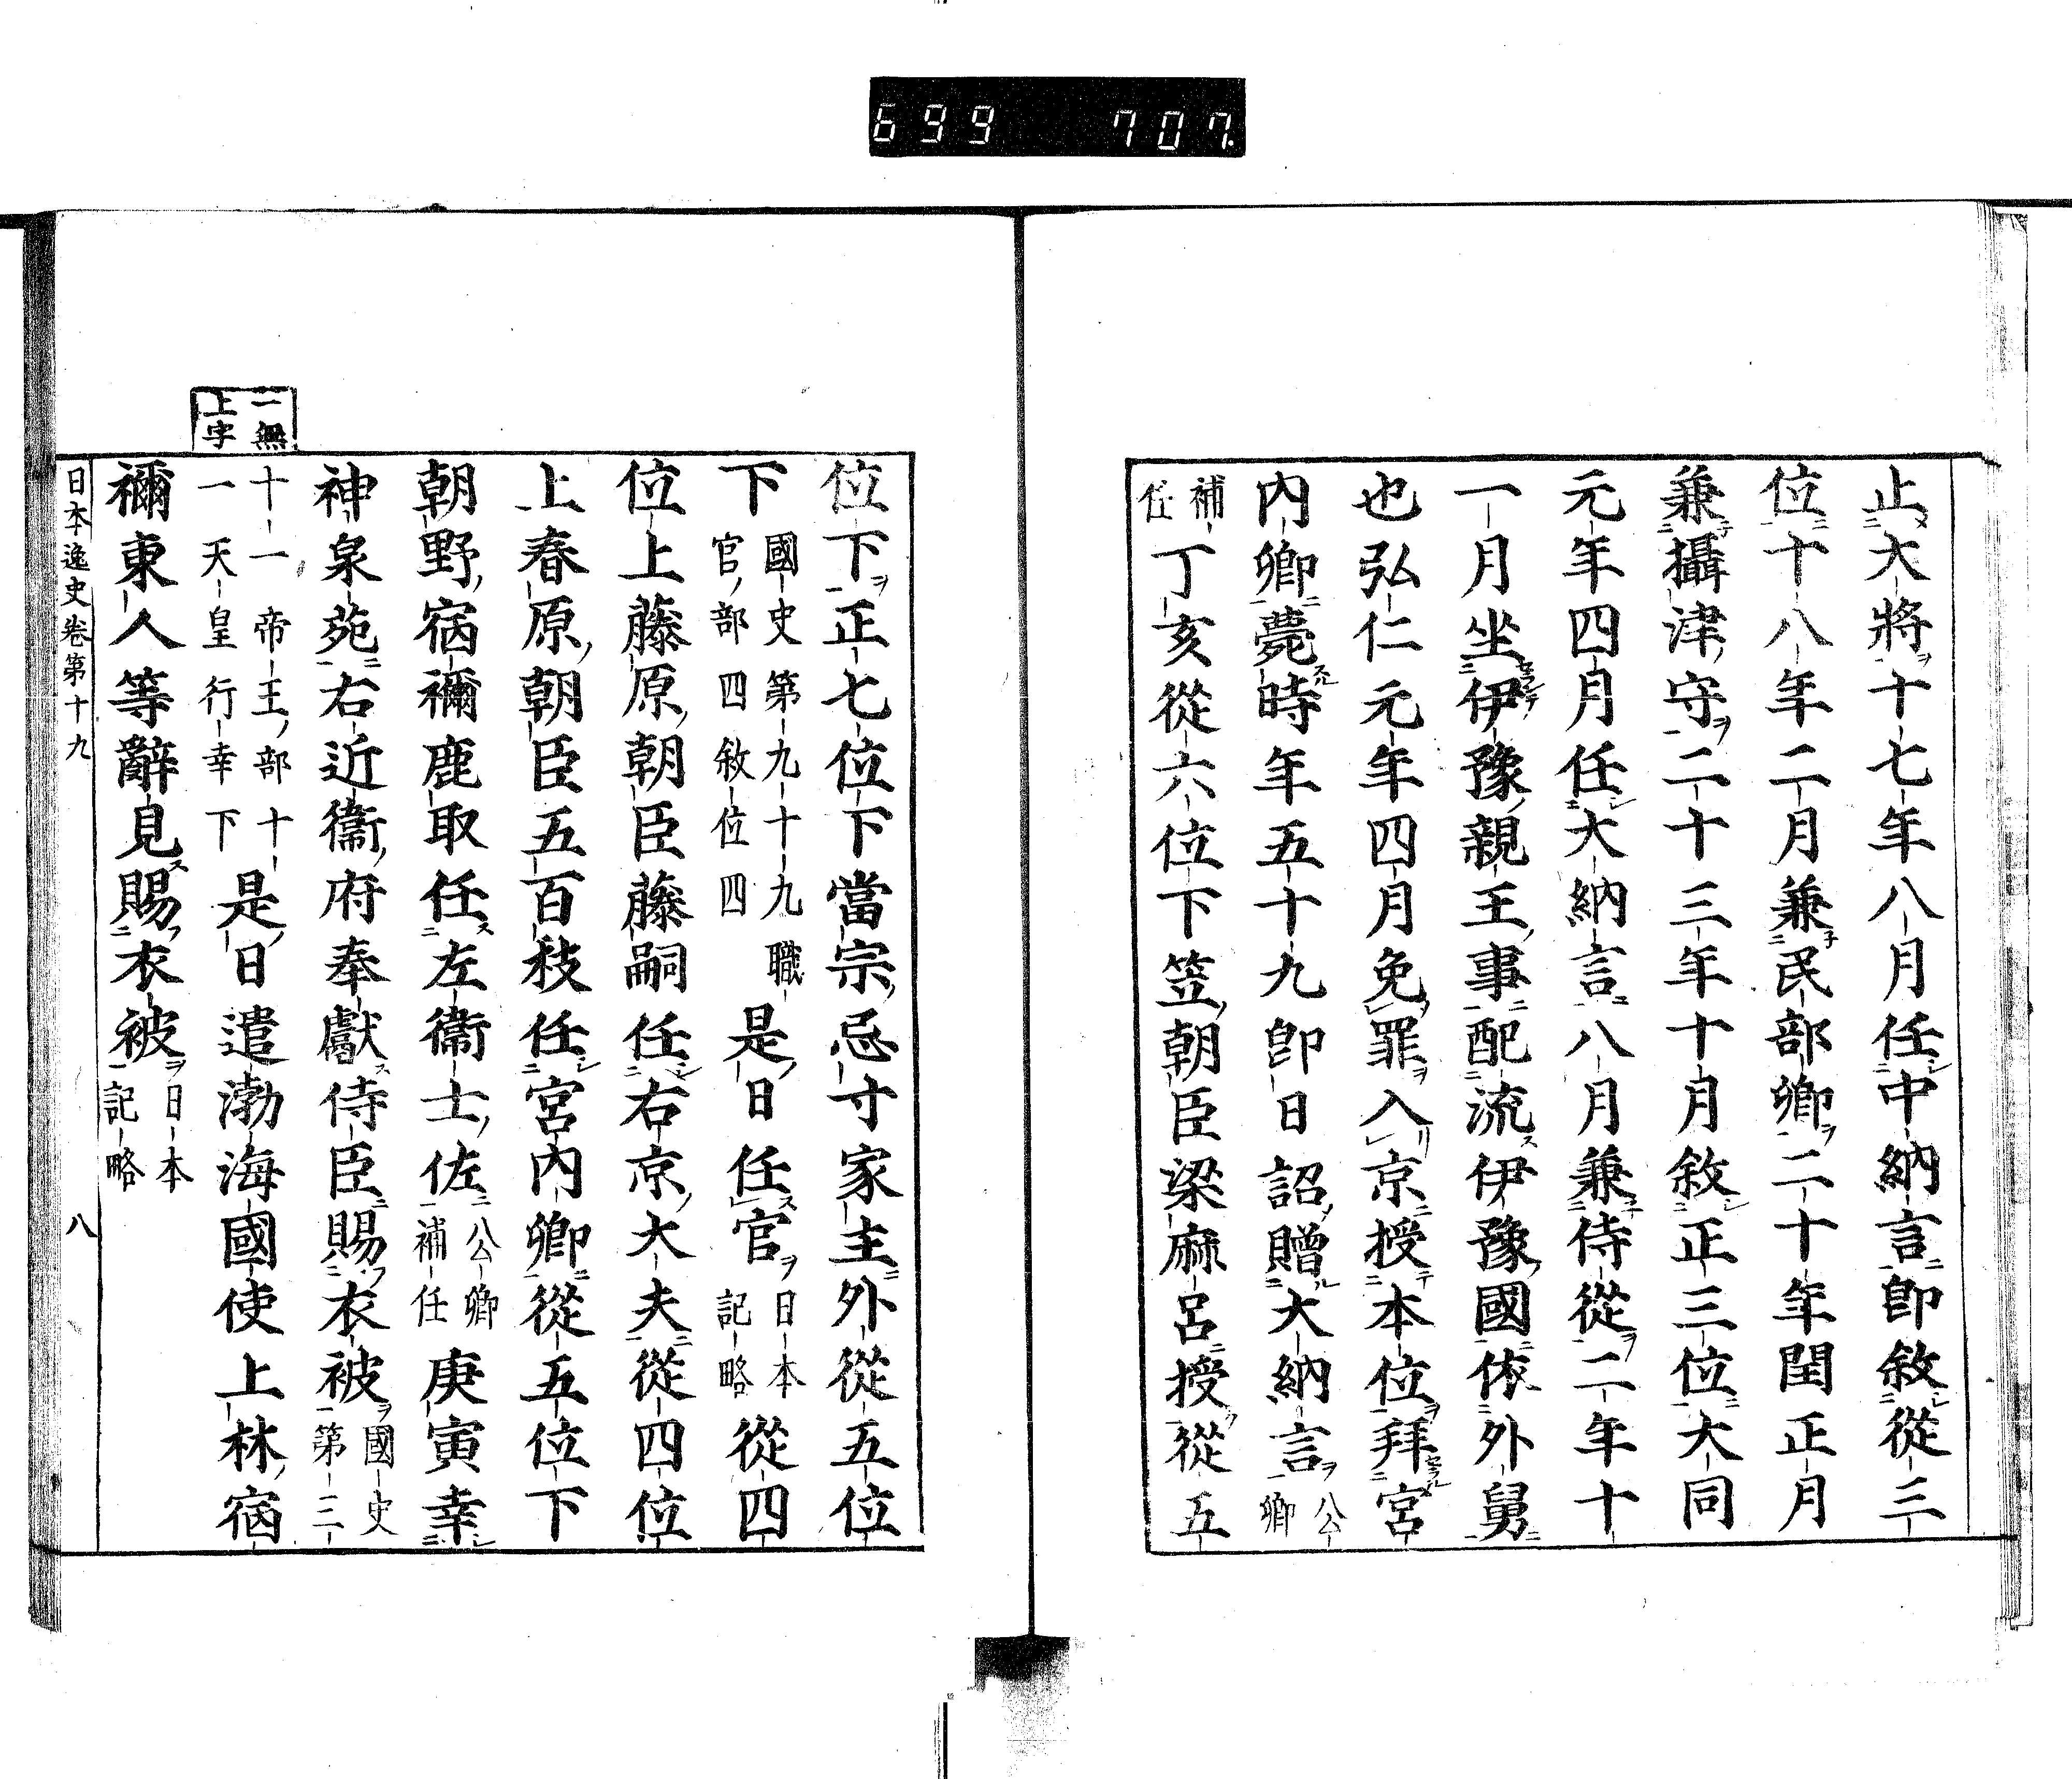 699 707.
止大將十七年八月任中納言卽敘從三
位十八年二月兼民部卿二十年閏正月
兼攝津守二十三年十月敘正三位大同
元年四月任大納言八月兼侍從二年十
一月坐伊豫親王事配流伊豫國依外舅
也弘仁元年四月免罪入京授本位拜宮
內卿薨時年五十九卽日詔贈大納言公卿
補任丁亥從六位下笠朝臣梁麻呂授從五
位下正七位下當宗忌寸家主外從五位
下國史第九十九職官部四敘位四是日任官日本記略從四
位上藤原朝臣藤嗣任右京大夫從四位
上春原朝臣五百枝任宮內卿從五位下
朝野宿禰鹿取任左衞士佐公卿補任庚寅幸
神泉苑右近衞府奉獻侍臣賜衣被國史第三
十一帝王部十一天皇行幸下是日遣渤海國使上林宿
禰東人等辭見賜衣被日本記略
一無上字
日本逸史卷第十九 八